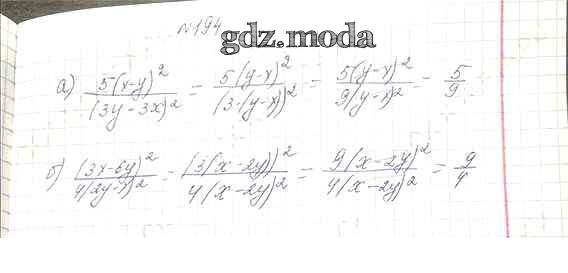 №194
gdz.moda
а) 5(x-y)²/(3y-3x)² = 5(y-x)²/(3(y-x))² = 5(y-x)²/9(y-x)² = 5/9
б) (3x-6y)²/4(2y-x)² = (3(x-2y))²/4(x-2y)² = 9(x-2y)²/4(x-2y)² = 9/4